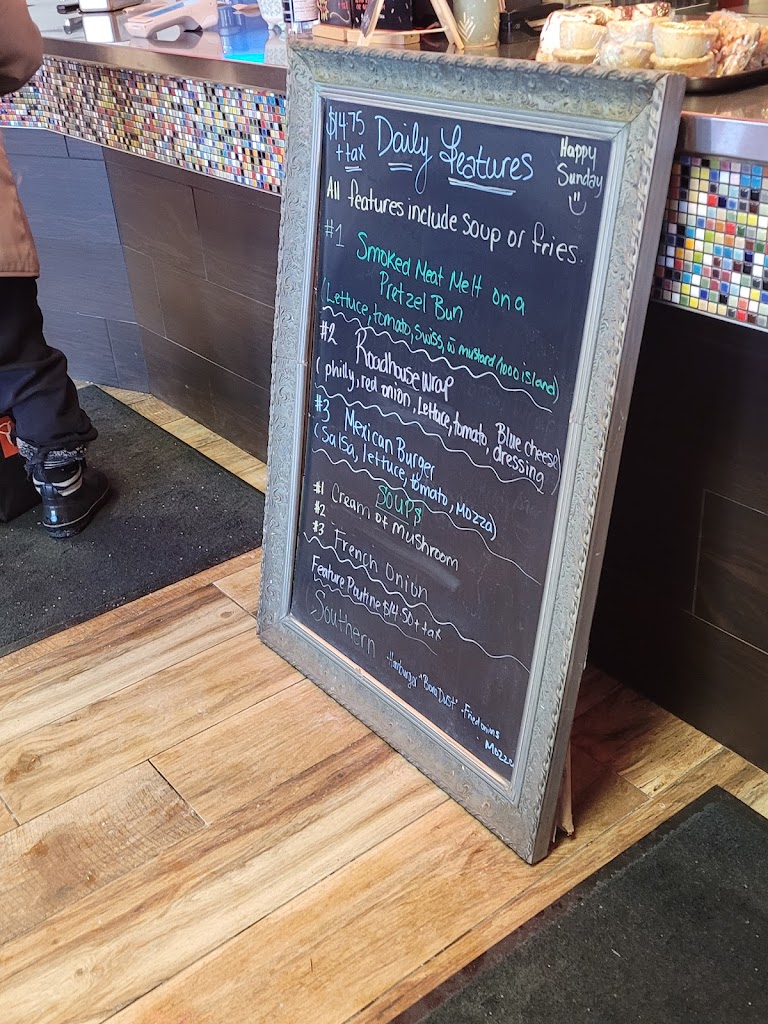 $14.75
+ tax
Daily Features
Happy
Sunday
All features include soup or fries.
#1
Smoked Meat Melt on a
Pretzel Bun
(Lettuce, tomato, swiss, w mustard/1000 island)
#2
Roadhouse Wrap
(philly, red onion, lettuce, tomato, Blue cheese
dressing)
#3
Mexican Burger
(Salsa, lettuce, tomato, Mozza)
Soups
#1
Cream of Mushroom
#2
#3
French Onion
Feature Poutine $14.50 + tax
Southern
Hamburger "Bona Dust" - Fried onions
- Mozza